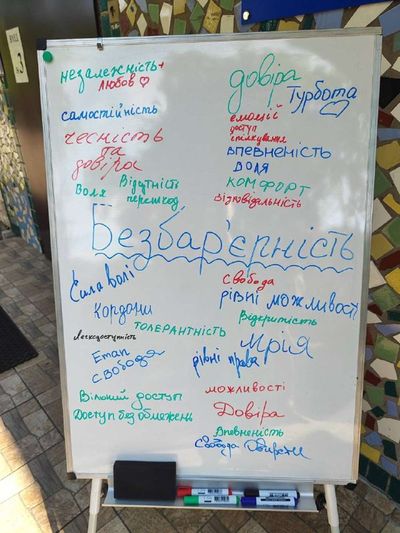 незалежність+
любов
довіра
Турбота
самостійність
емоції
доступ
спілкування
чесність
та
довіра
впевненість
воля
Воля
Відсутність
перешкод
комфорт
відповідальність
Безбар'єрність
Сила волі
свобода
рівні можливості
Кордони
Відкритість
толерантність
Легкодоступність
Мрія
Етап
свобода
рівні права
можливості
Вільний доступ
Довіра
Доступ без обмежень
Впевненість
Свобода